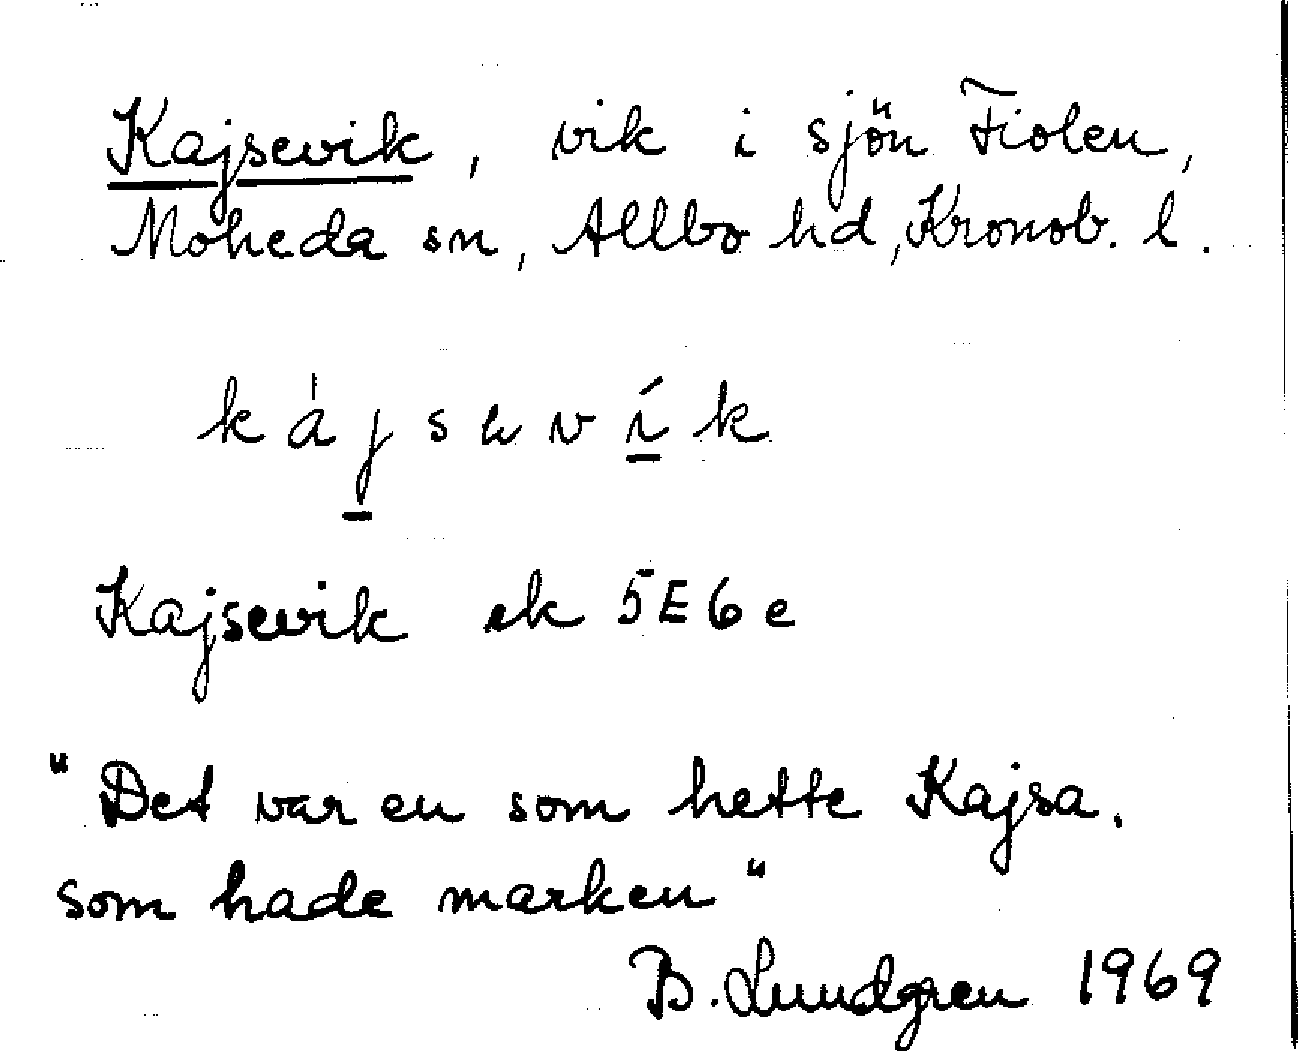 Kajsevik, vik i sjön Fiolen,
Moheda sn, Allbo hd, Kronob. l.
kájsevík
Kajsevik ek 5E6e
"Det var en som hette Kajsa,
som hade marken"
B. Lundgren 1969